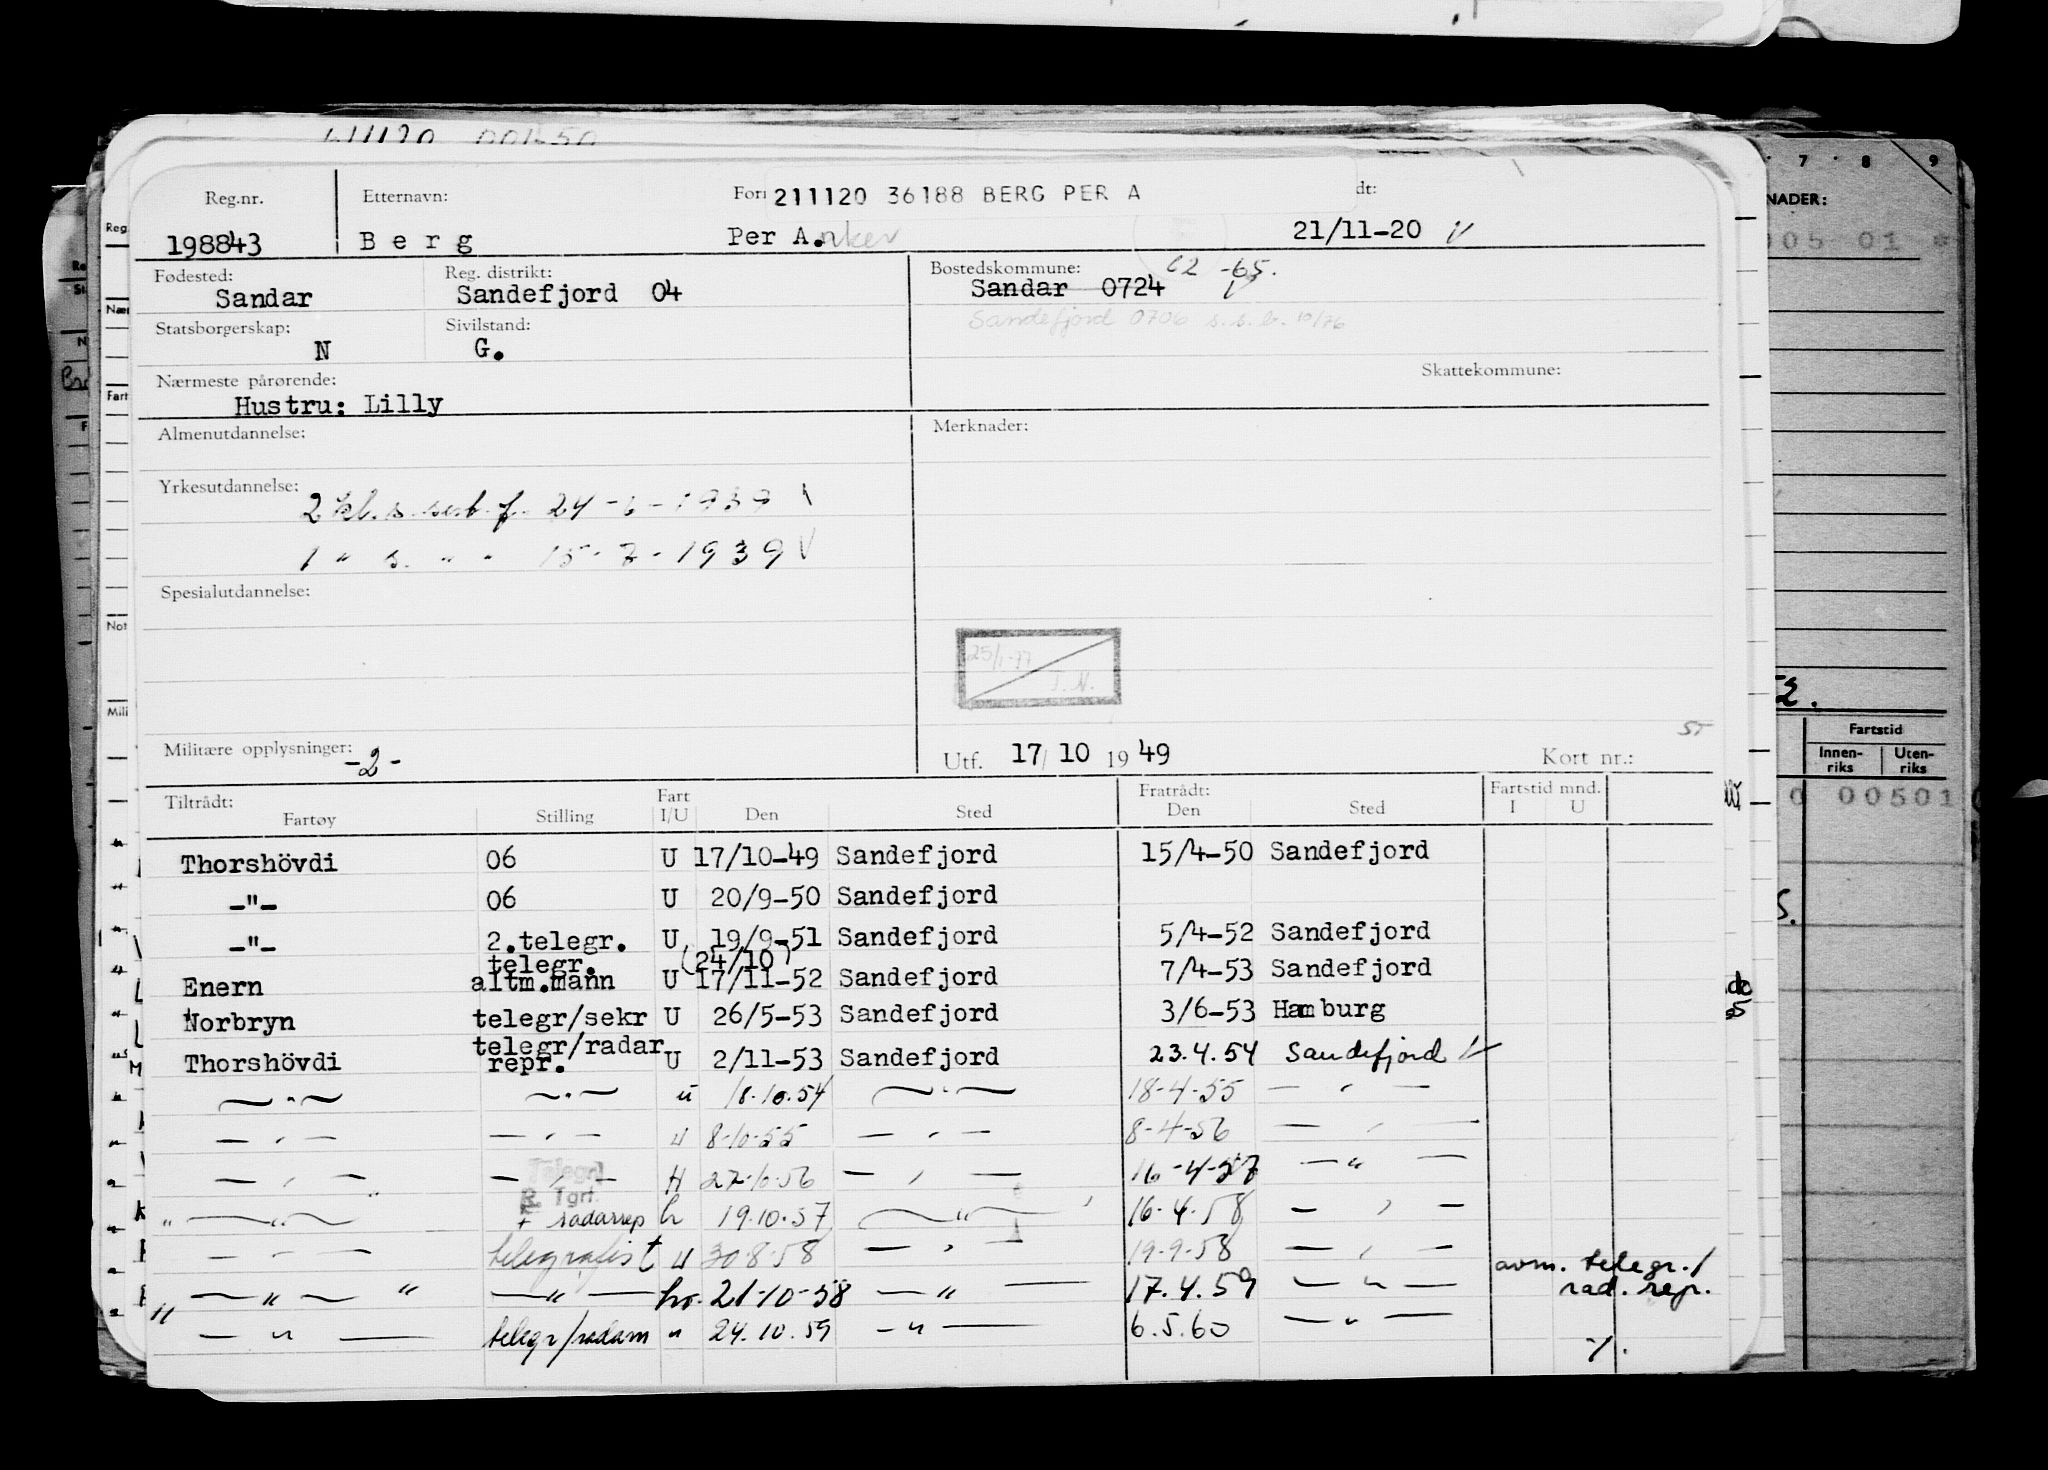 Reg.nr. Etternavn: Forn 211120 36188 BERG PER A dt:
198843 Berg Per A.nker 21/11-20 V
Fødested: Reg. distrikt: Bostedskommune: 62 -65.
Sandar Sandefjord 04 Sandar 0724
Sandefjord 0706 s.s.b. 10/76
Statsborgerskap: Sivilstand:
N G.
Nærmeste pårørende: Skattekommune:
Hustru: Lilly
Almenutdannelse: Merknader:
Yrkesutdannelse:
2 kl. s. sert. f. 24-6-1939
1 " s. " " 15-7-1939 V
Spesialutdannelse:
25/1-77
T.N.
Militære opplysninger: -2- Utf. 17/10 1949 Kort nr.:
Tiltrådt: Fart Fratrådt: Fartstid mnd.
Fartøy Stilling I/U Den Sted Den Sted I U
Thorshövdi 06 U 17/10-49 Sandefjord 15/4-50 Sandefjord
-"- 06 U 20/9-50 Sandefjord
-"- 2.telegr. U 19/9-51 Sandefjord 5/4-52 Sandefjord
telegr. (24/10)
Enern altm.mann U 17/11-52 Sandefjord 7/4-53 Sandefjord
Norbryn telegr/sekr U 26/5-53 Sandefjord 3/6-53 Hamburg
Thorshövdi telegr/radar repr. U 2/11-53 Sandefjord 23.4.54 Sandefjord
-"- -"- u 18.10.54 -"- 18-4-55 -"-
-"- -"- u 8-10-55 -"- 8-4-56 -"-
-"- -"- U 27-10-56 -"- 16-4-57 -"-
Telegr.
R. Tgrf.
-"- + radarrep u 19.10.57 -"- 16-4-58 -"-
-"- telegrafist u 30-8-58 -"- 19-9-58 -"-
-"- -"- 21-10-58 -"- 17.4.59 -"- avm. telegr./
rad. repr.
-"- telegr/radarm " 24.10.59 -"- 6.5.60 -"-
7 8 9
NADER:
005 01
Fartstid
Innen-riks Uten-riks
0 00501